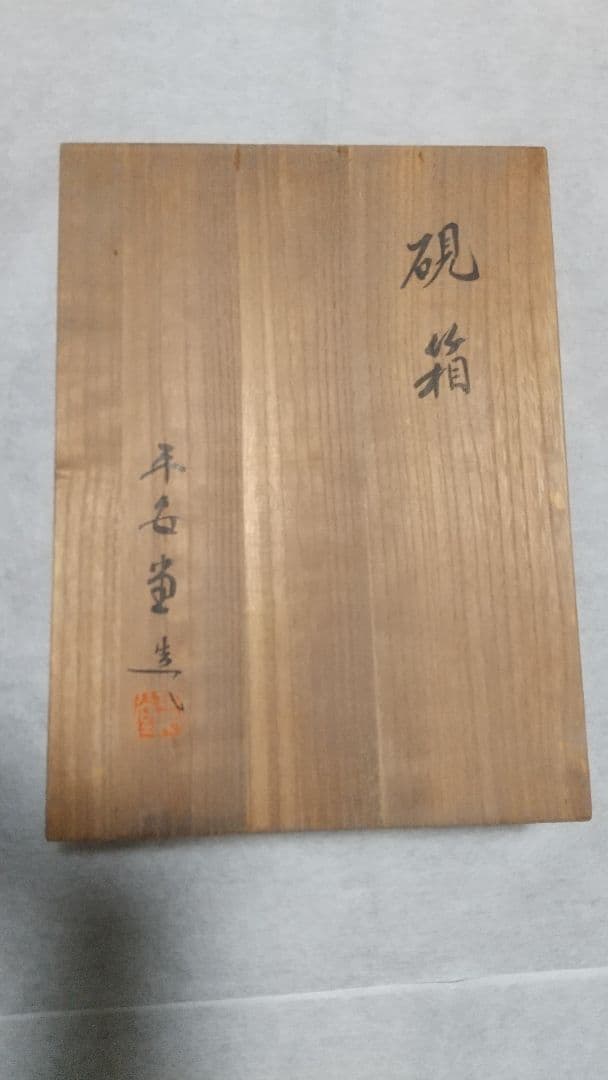 硯箱
平安堂造